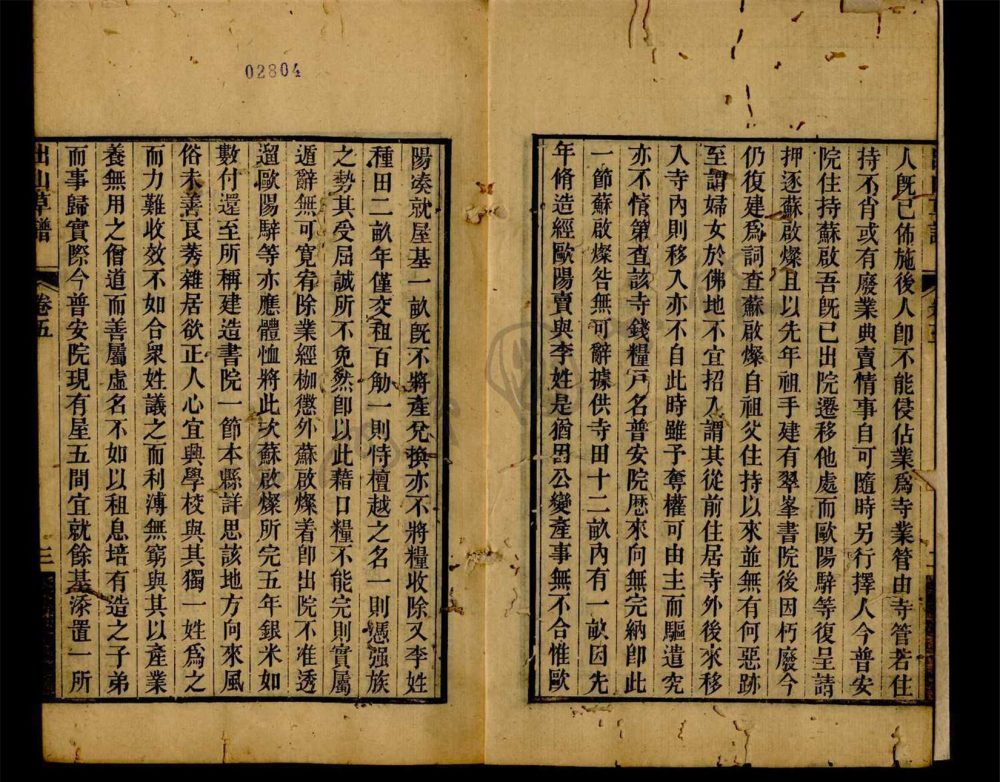 02804
人旣已佈施後人卽不能侵佔業爲寺業管由寺管若住
持不肖或有廢業典賣情事自可隨時另行擇人今普安
院住持蘇啟吾旣已出院遷移他處而歐陽騂等復呈請
押逐蘇啟燦且以先年祖手建有翠峯書院後因朽廢今
仍復建爲詞查蘇啟燦自祖父住持以來並無有何惡跡
至謂婦女於佛地不宜招入謂其從前住居寺外後來移
入寺內則移入亦不自此時雖予奪權可由主而驅遣究
亦不情第查該寺錢糧戶名普安院歷來向無完納卽此
一節蘇啟燦咎無可辭據供寺田十二畝內有一畝因先
年脩造經歐陽賣與李姓是猶因公變產事無不合惟歐
陽凑就屋基一畝旣不將產兌換亦不將糧收除又李姓
種田二畝年僅交租百觔一則恃檀越之名一則憑强族
之勢其受屈誠所不免然卽以此藉口糧不能完則實屬
遁辭無可寛宥除業經枷懲外蘇啟燦着卽出院不准透
遛歐陽騂等亦應體恤將此次蘇啟燦所完五年銀米如
數付還至所稱建造書院一節本縣詳思該地方向來風
俗未善良莠雜居欲正人心宜興學校與其獨一姓爲之
而力難收效不如合衆姓議之而利溥無窮與其以產業
養無用之僧道而善屬虛名不如以租息培有造之子弟
而事歸實際今普安院現有屋五間宜就餘基添置一所
出山草譜
卷五
三